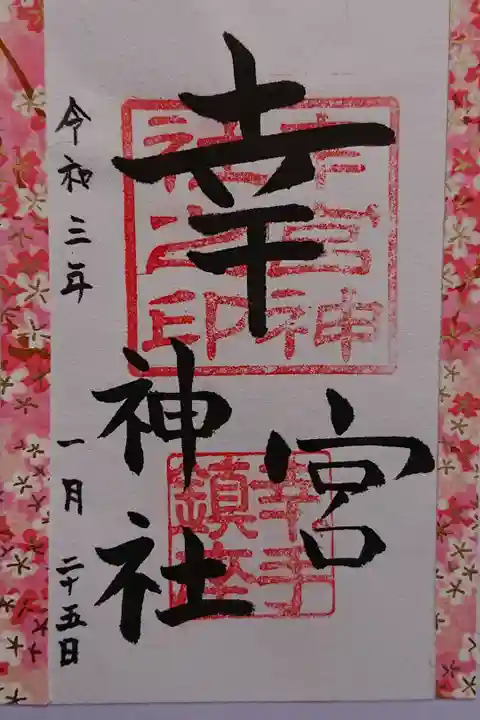 幸宮
神社
令和三年 一月 二十五日
幸宮神
社之印
幸手
鎮座